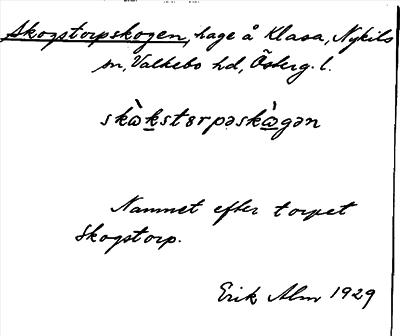 Skogstorpskogen, hage å Klasa, Nykils
sn, Valkebo hd, Österg. l.
skὼkstɤrpəskὼgən
Namnet efter torpet
Skogstorp.
Erik Alm 1929